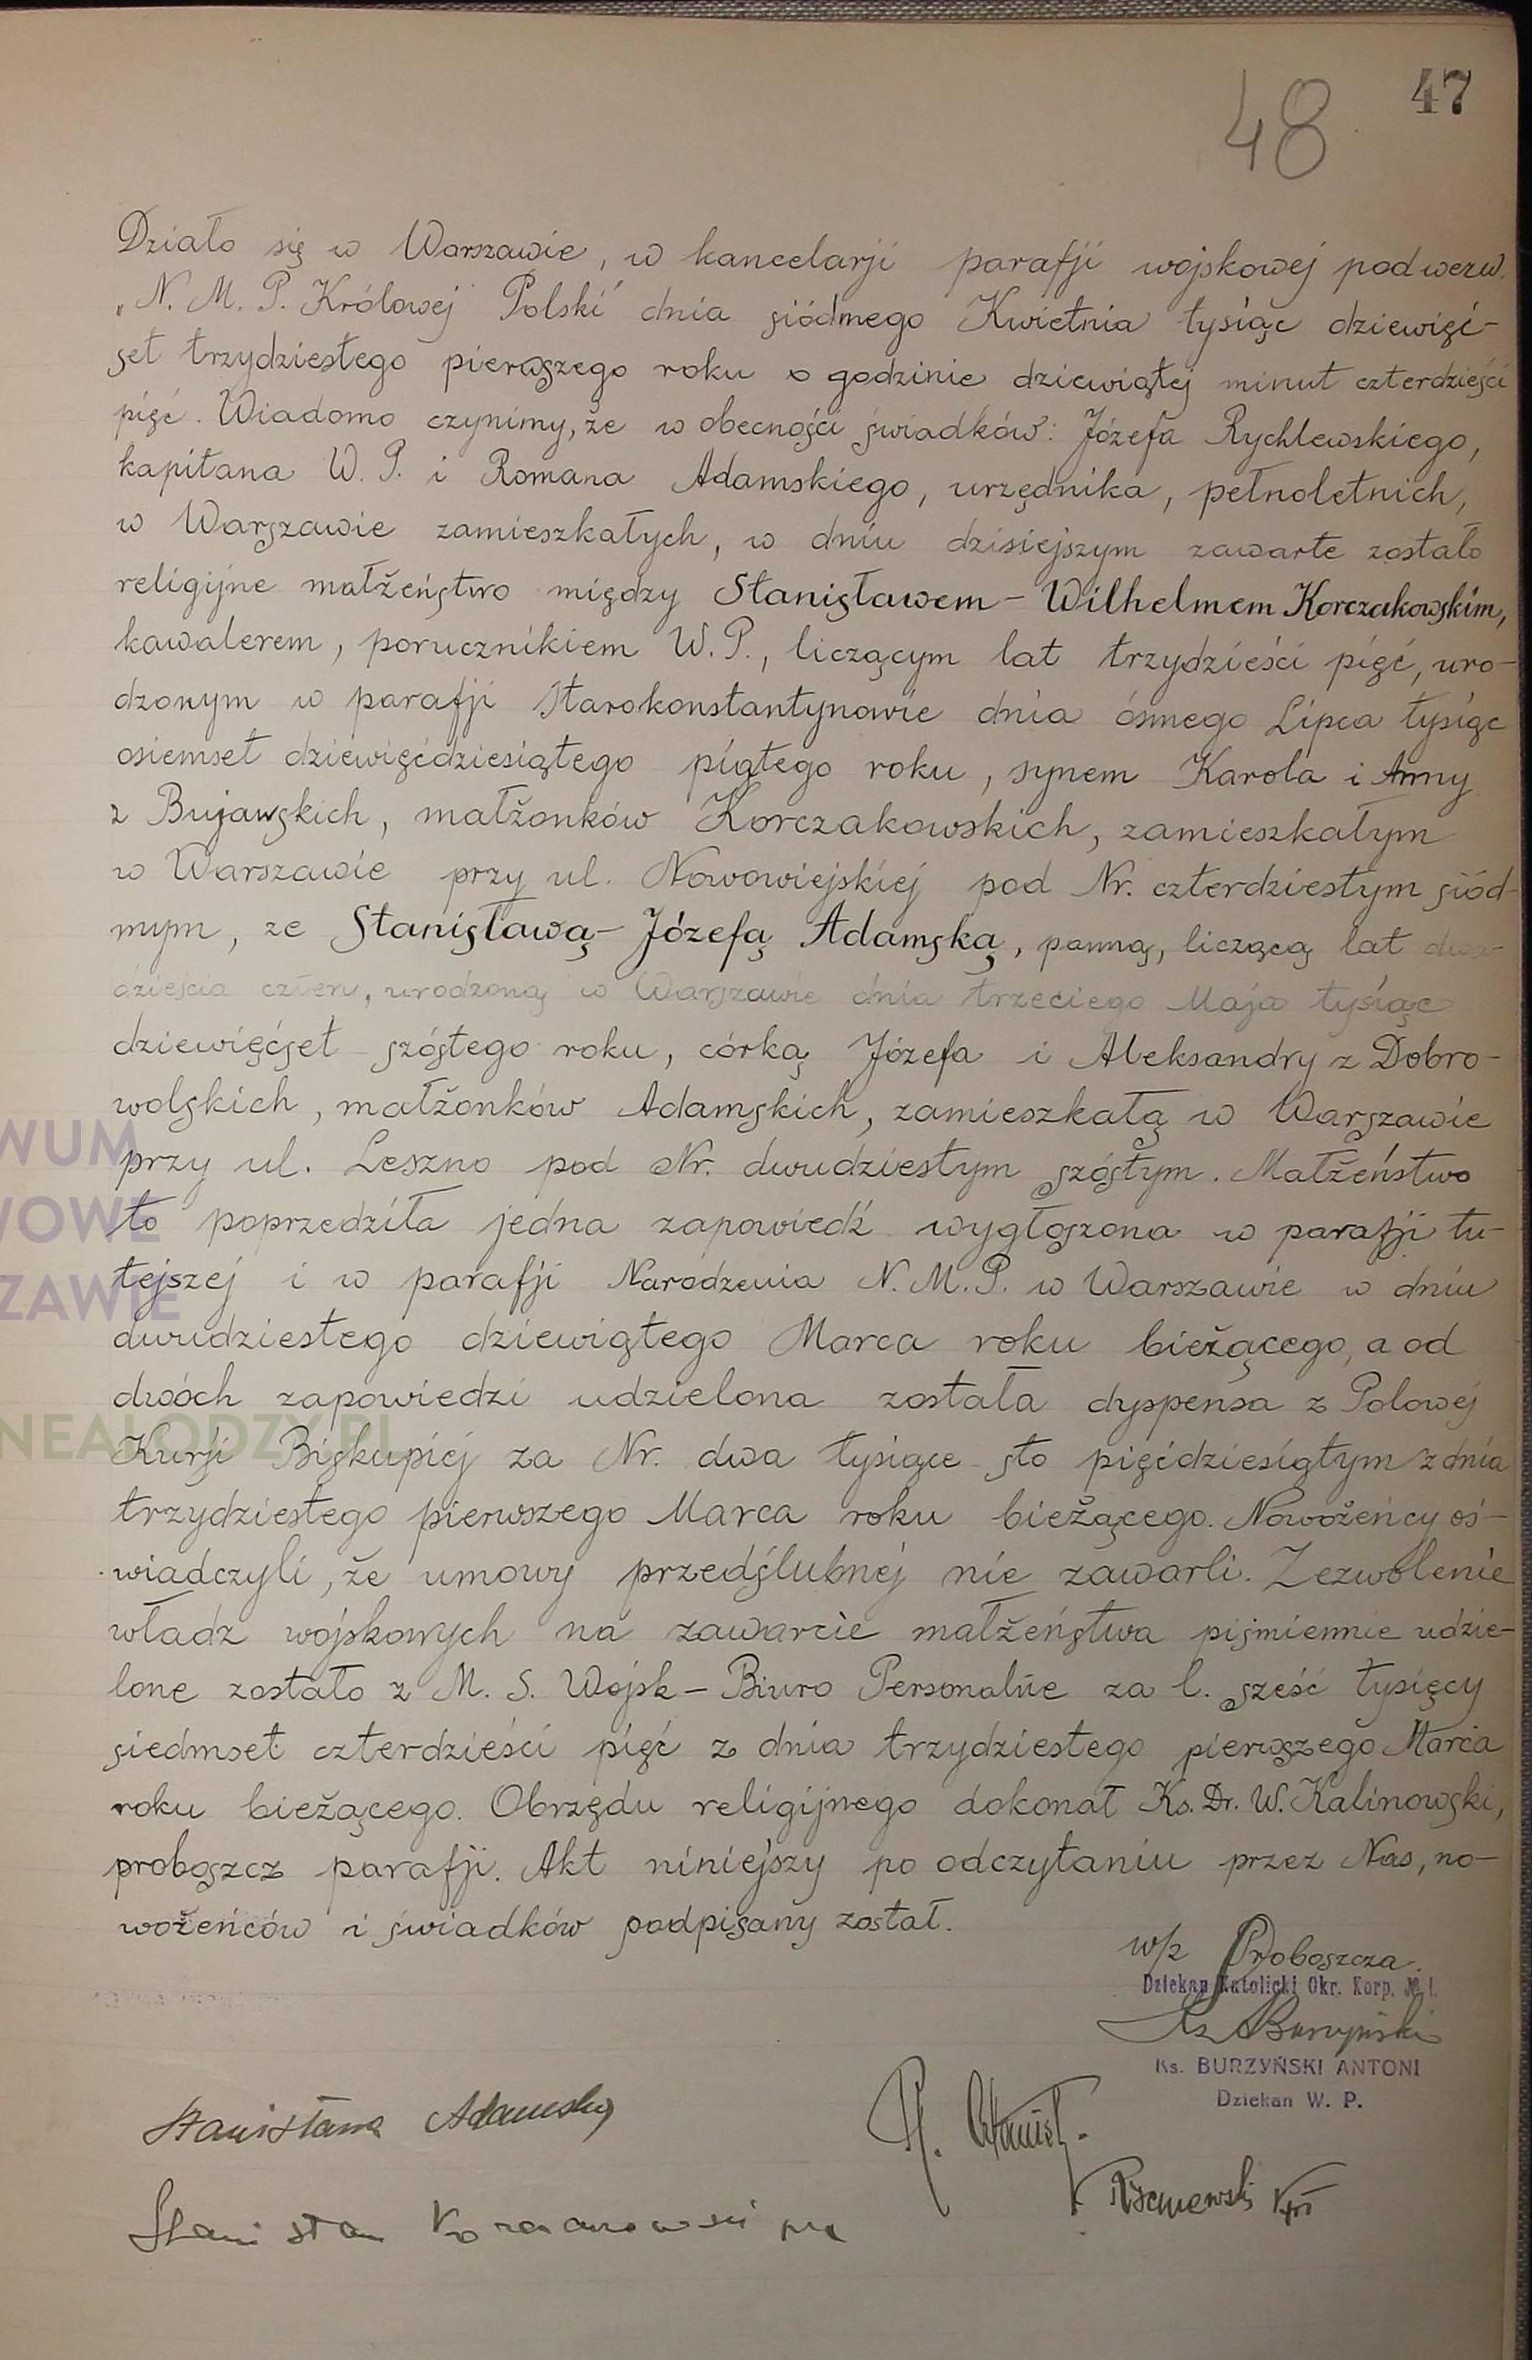 47
48
Działo się w Warszawie, w kancelarji parafji wojskowej pod wezw.
„N. M. P. Królowej Polski" dnia siódmego Kwietnia tysiąc dziewięć-
set trzydziestego pierwszego roku o godzinie dziewiątej minut czterdzieści
pięć. Wiadomo czynimy, że w obecności świadków: Józefa Rychlewskiego,
kapitana W. P. i Romana Adamskiego, urzędnika, pełnoletnich,
w Warszawie zamieszkałych, w dniu dzisiejszym zawarte zostało
religijne małżeństwo między Stanisławem-Wilhelmem Korczakowskim,
kawalerem, porucznikiem W. P., liczącym lat trzydzieści pięć, uro-
dzonym w parafji Starokonstantynowie dnia ósmego Lipca tysiąc
osiemset dziewięćdziesiątego piątego roku, synem Karola i Anny
z Bujawskich, małżonków Korczakowskich, zamieszkałym
w Warszawie przy ul. Nowowiejskiej pod Nr. czterdziestym siód-
mym, ze Stanisławą-Józefą Adamską, panną, liczącą lat dwa-
dzieścia cztery, urodzoną w Warszawie dnia trzeciego Maja tysiąc
dziewięćset szóstego roku, córką Józefa i Aleksandry z Dobro-
wolskich, małżonków Adamskich, zamieszkałą w Warszawie
przy ul. Leszno pod Nr. dwudziestym szóstym. Małżeństwo
to poprzedziła jedna zapowiedź wygłoszona w parafji tu-
tejszej i w parafji Narodzenia N. M. P. w Warszawie w dniu
dwudziestego dziewiątego Marca roku bieżącego, a od
dwóch zapowiedzi udzielona została dyspensa z Polowej
Kurji Biskupiej za Nr. dwa tysiące sto pięćdziesiątym z dnia
trzydziestego pierwszego Marca roku bieżącego. Nowożeńcy oś-
wiadczyli, że umowy przedślubnej nie zawarli. Zezwolenie
władz wojskowych na zawarcie małżeństwa piśmiennie udzie-
lone zostało z M. S. Wojsk – Biuro Personalne za l. sześć tysięcy
siedmset czterdzieści pięć z dnia trzydziestego pierwszego Marca
roku bieżącego. Obrzędu religijnego dokonał Ks. Dr. W. Kalinowski,
proboszcz parafji. Akt niniejszy po odczytaniu przez Nas, no-
wożeńców i świadków podpisany został.
w/z Proboszcza.
Dziekan Katolicki Okr. Korp. № I.
Ks A Burzyński
Ks. BURZYŃSKI ANTONI
Dziekan W. P.
Stanisława Adamska
R. Adamski
Rychlewski kpt
Stanisław Korczakowski por
WUM
WOWE
ZAWIE
NEALODZY.PL